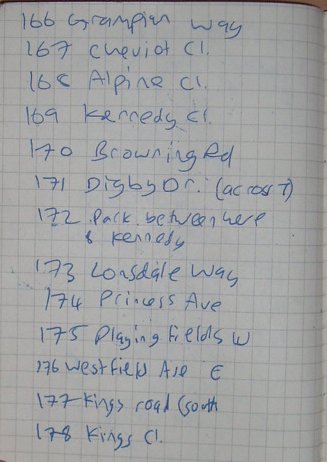 166 Grampian Way
167 Cheviot Cl.
168 Alpine Cl.
169 Kennedy Cl.
170 Browning Rd
171 Digby Dr. (across T)
172 Park between here
& Kennedy
173 Lonsdale Way
174 Princess Ave
175 Playing Fields W
176 Westfield Ave E
177 Kings road (south
178 Kings Cl.